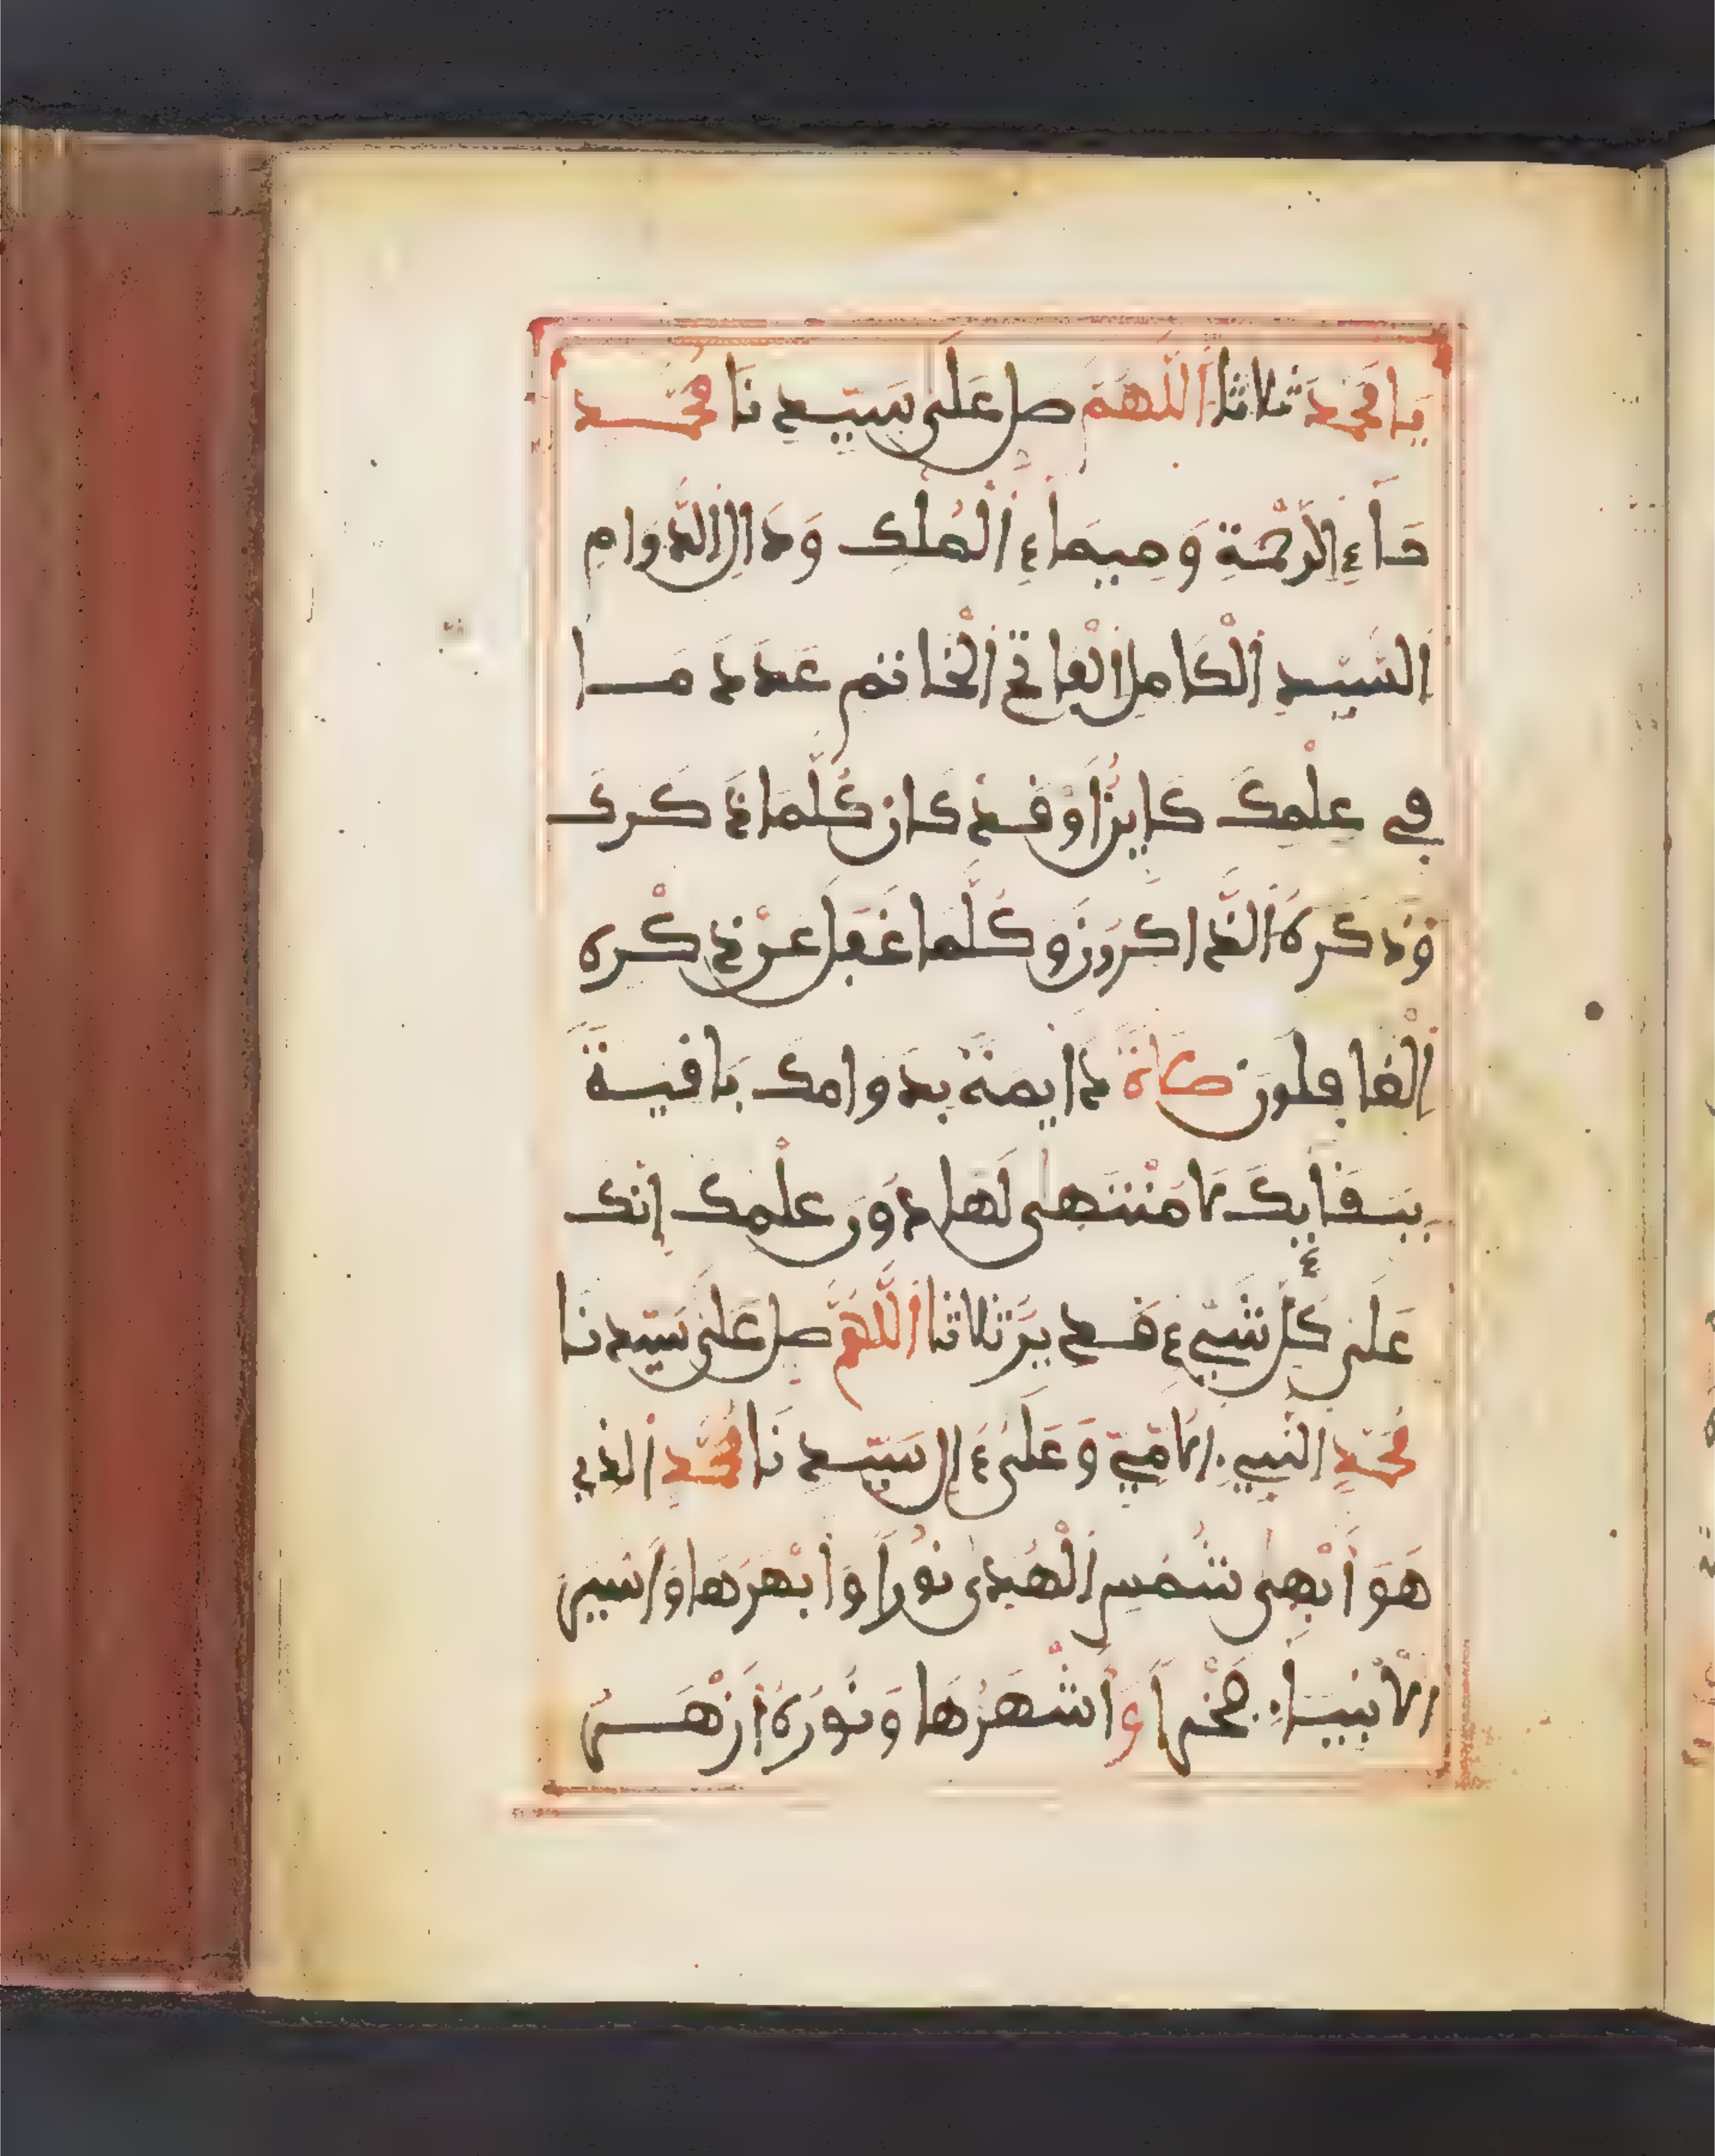 يَا مُحَمَّد ثلاثا اَللَّهُمَّ صل عَلَى سَيِّدِنَا مُحَمَّد
حَاءِ الرَّحْمَةِ وَمِيمَاءِ اَلْمُلْكِ وَدَالِ الدَّوَامِ
السَّيِّدِ اَلْكَامِلِ اَلْفَاتِحِ اَلْخَاتَمِ عَدَدَ مَا
فِي عِلْمِكَ كَايِنٌ اَوْ قَدْ كَانَ كُلَّمَا ذَكَرَكَ
وَذَكَرَهُ اَلذَّاكِرُونَ وَكُلَّمَا غَفَلَ عَنْ ذِكْرِهِ
اَلْغَافِلُونَ صَلَاةً دَايِمَةً بِدَوَامِكَ بَاقِيَةً
بِبَقَايِكَ لَا مُنْتَهَى لَهَا دُونَ عِلْمِكَ إِنَّكَ
عَلَى كُلِّ شَيْءٍ قَدِيرٌ ثلاثا اَللَّهُمَّ صل عَلَى سَيِّدِنَا
مُحَمَّدٍ النَّبِيِّ الْأُمِّيِّ وَعَلَى ءَالِ سَيِّدِنَا مُحَمَّدٍ اَلَّذِي
هُوَ أَبْهَى شُمُوسِ اَلْهُدَى نُورًا وَأَبْهَرُهَا وَأَسْيَرُ
الْأَنْبِيَاءِ فَخْرًا وَأَشْهَرُهَا وَنُورُهُ أَزْهَرُ